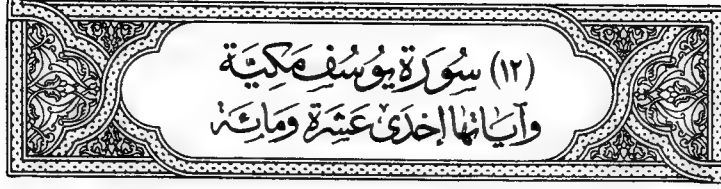 (١٢) سُورَة يُوسُف مَكِيَّة
وَآيَاتهَا إحْدَى عَشَرَة وَمَائِة